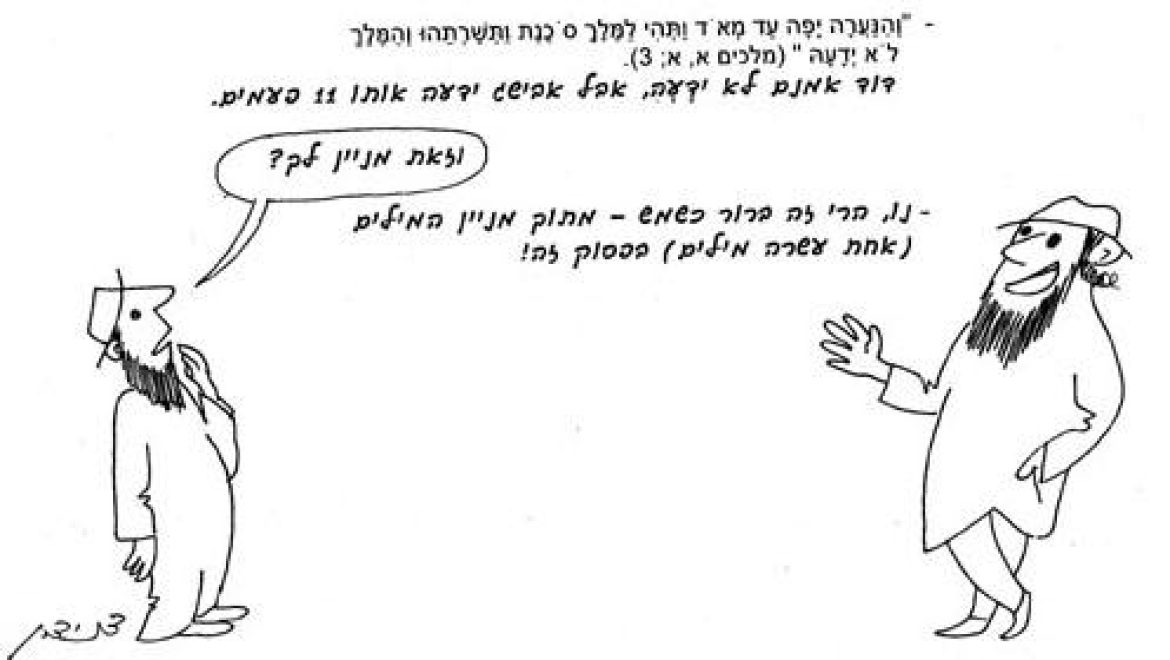 - "וְהַנַּעֲרָה יָפָה עַד מְאֹד וַתְּהִי לַמֶּלֶךְ סֹכֶנֶת וַתְּשָׁרְתֵהוּ וְהַמֶּלֶךְ
לֹא יְדָעָהּ" (מלכים א, א; 3).
דוד אמנם לא יְדָעָהּ, אבל אבישג ידעה אותו 11 פעמים.
וזאת מניין לך?
- נו, הרי זה ברור כשמש – מתוך מניין המילים
(אחת עשרה מילים) בפסוק זה!